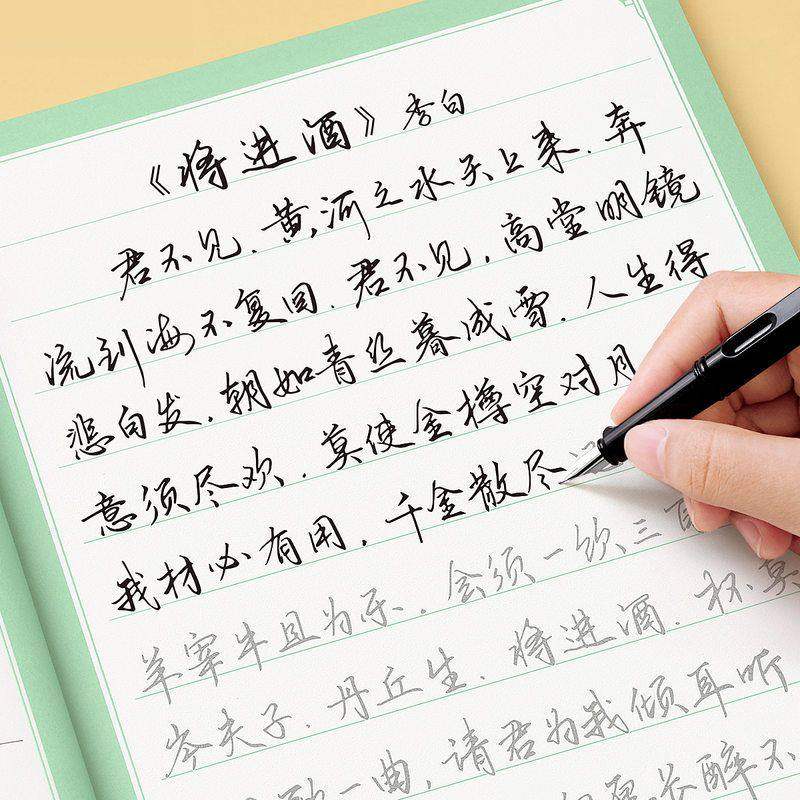 《将进酒》 李白
君不见，黄河之水天上来，奔
流到海不复回，君不见，高堂明镜
悲白发，朝如青丝暮成雪，人生得
意须尽欢，莫使金樽空对月
我材必有用，千金散尽
羊宰牛且为乐，会须一饮三百
岑夫子，丹丘生，将进酒，杯莫
歌一曲，请君为我倾耳听
醉不